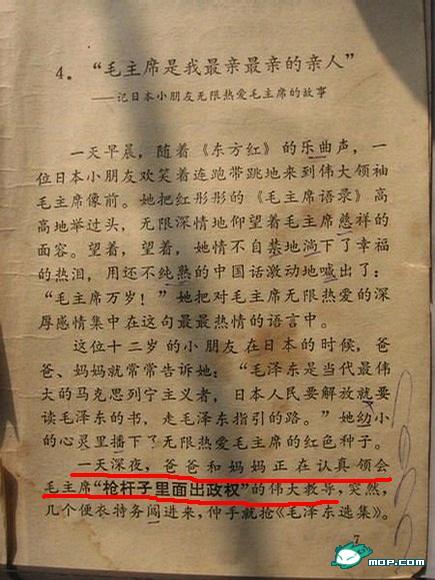 4．“毛主席是我最亲最亲的亲人”
——记日本小朋友无限热爱毛主席的故事
一天早晨，随着《东方红》的乐曲声，一
位日本小朋友欢笑着连跑带跳地来到伟大领袖
毛主席像前。她把红彤彤的《毛主席语录》高
高地举过头，无限深情地仰望着毛主席慈祥的
面容。望着，望着，她情不自禁地淌下了幸福
的热泪，用还不纯熟的中国话激动地喊出了：
“毛主席万岁！”她把对毛主席无限热爱的深
厚感情集中在这句最最热情的语言中。
这位十二岁的小朋友在日本的时候，爸
爸、妈妈就常常告诉她：“毛泽东是当代最伟
大的马克思列宁主义者，日本人民要解放就要
读毛泽东的书，走毛泽东指引的路。”她幼小
的心灵里播下了无限热爱毛主席的红色种子。
一天深夜，爸爸和妈妈正在认真领会
毛主席“枪杆子里面出政权”的伟大教导，突然，
几个便衣特务闯进来，伸手就抢《毛泽东选集》。
7
mop.com